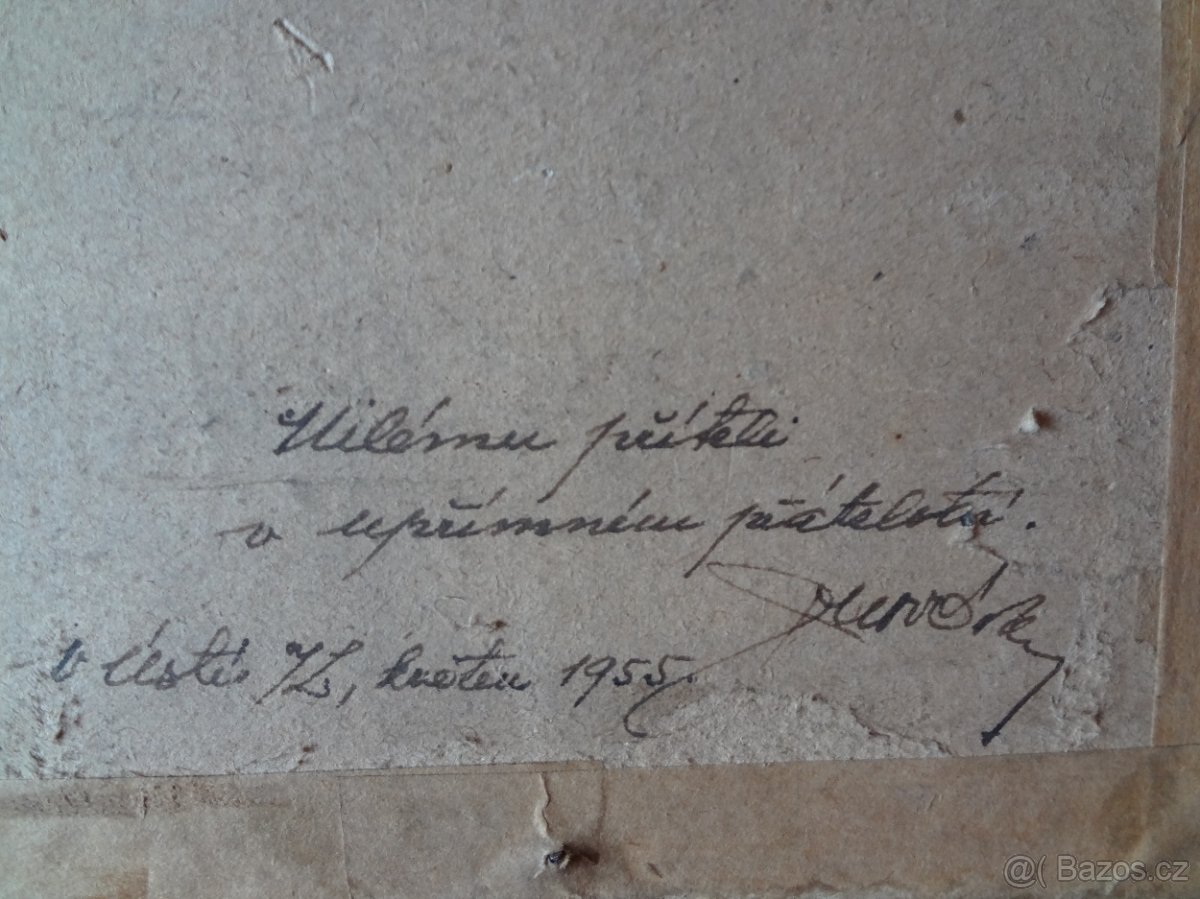 Milému příteli
v upřímném přátelství.
V Ústí n/L, květen 1955.
@( Bazos.cz